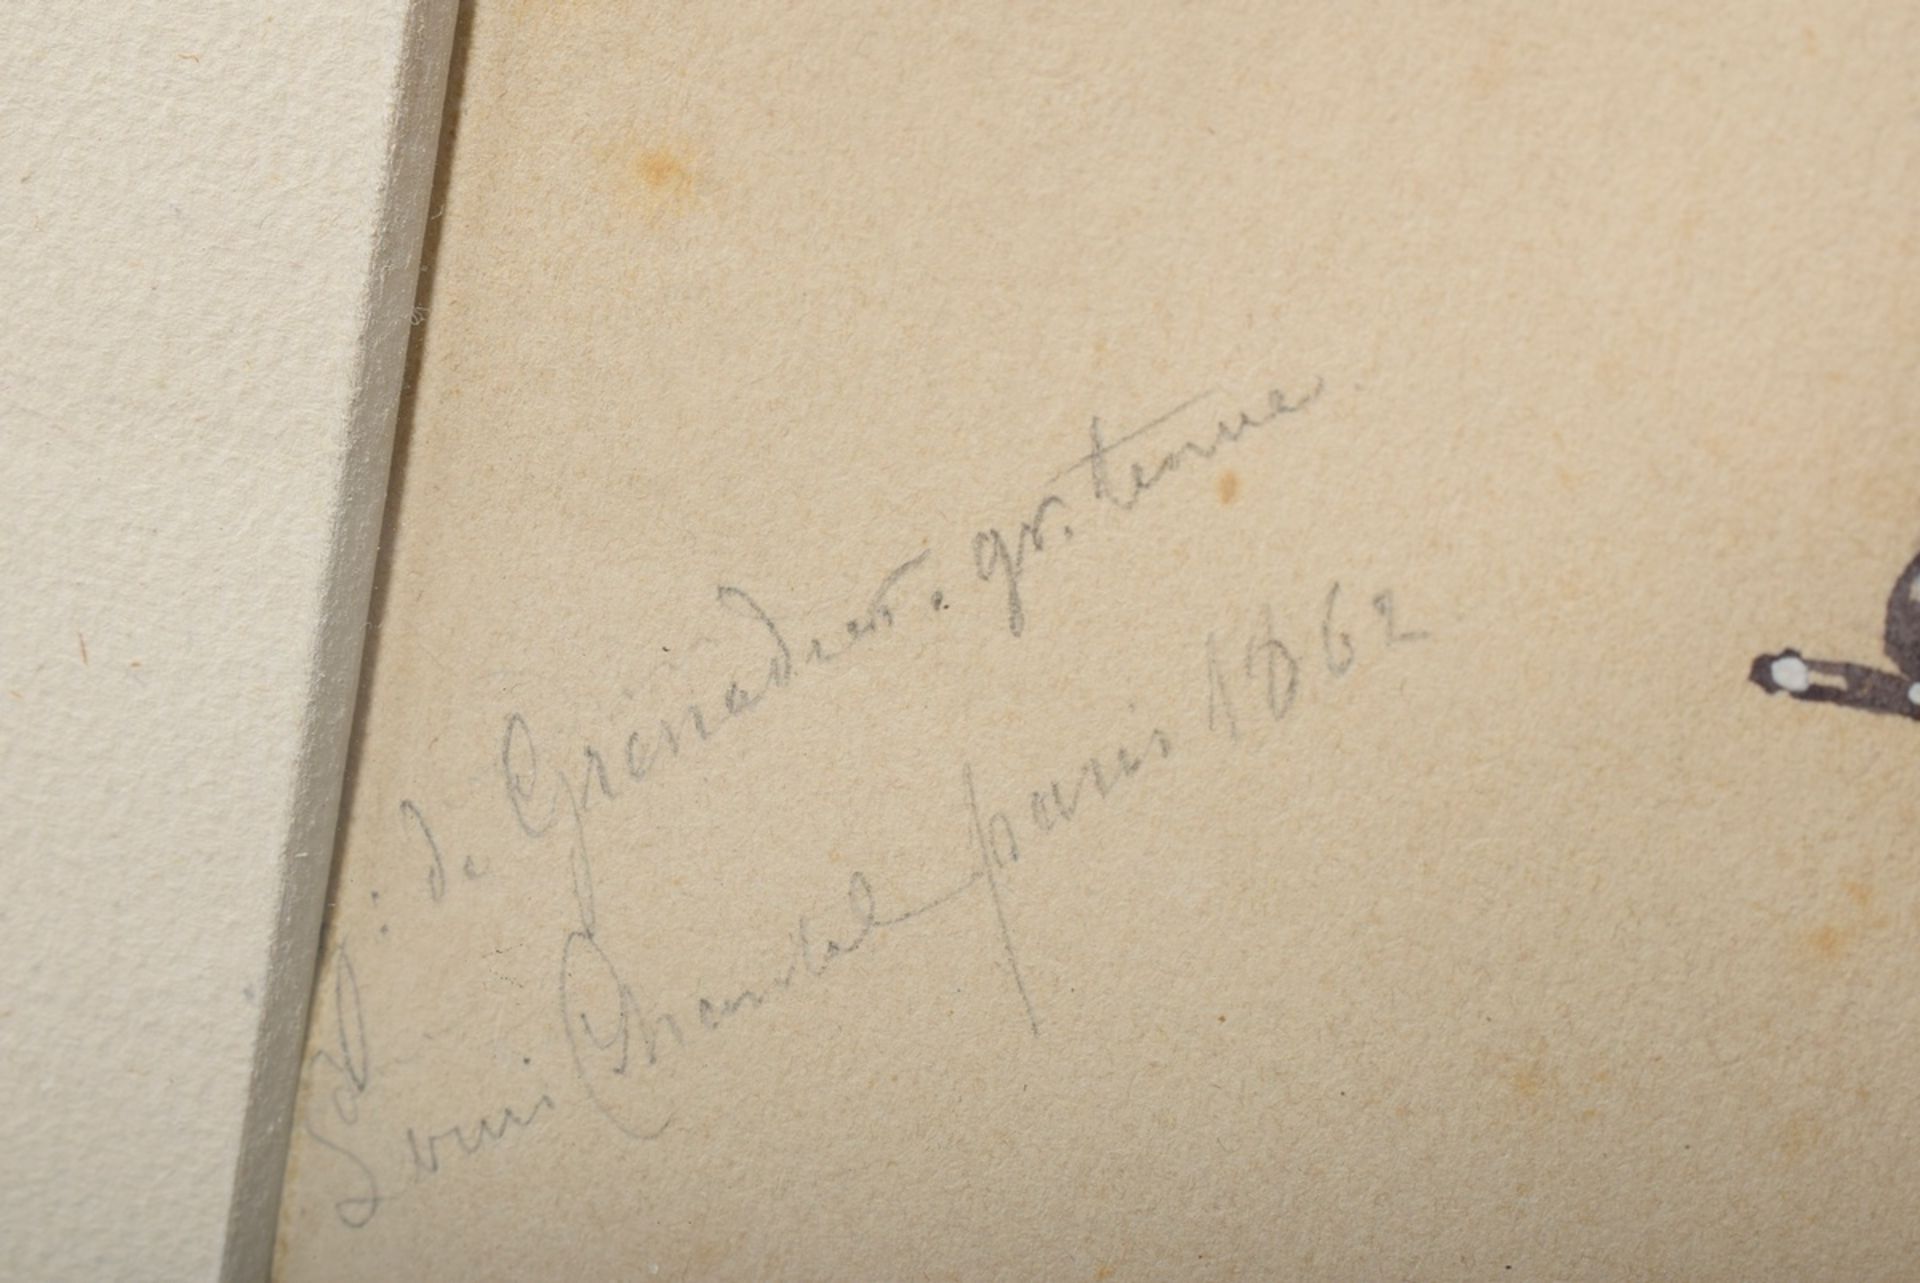 de Grenadier. gr. tenue.
Louis Chantel paris 1862